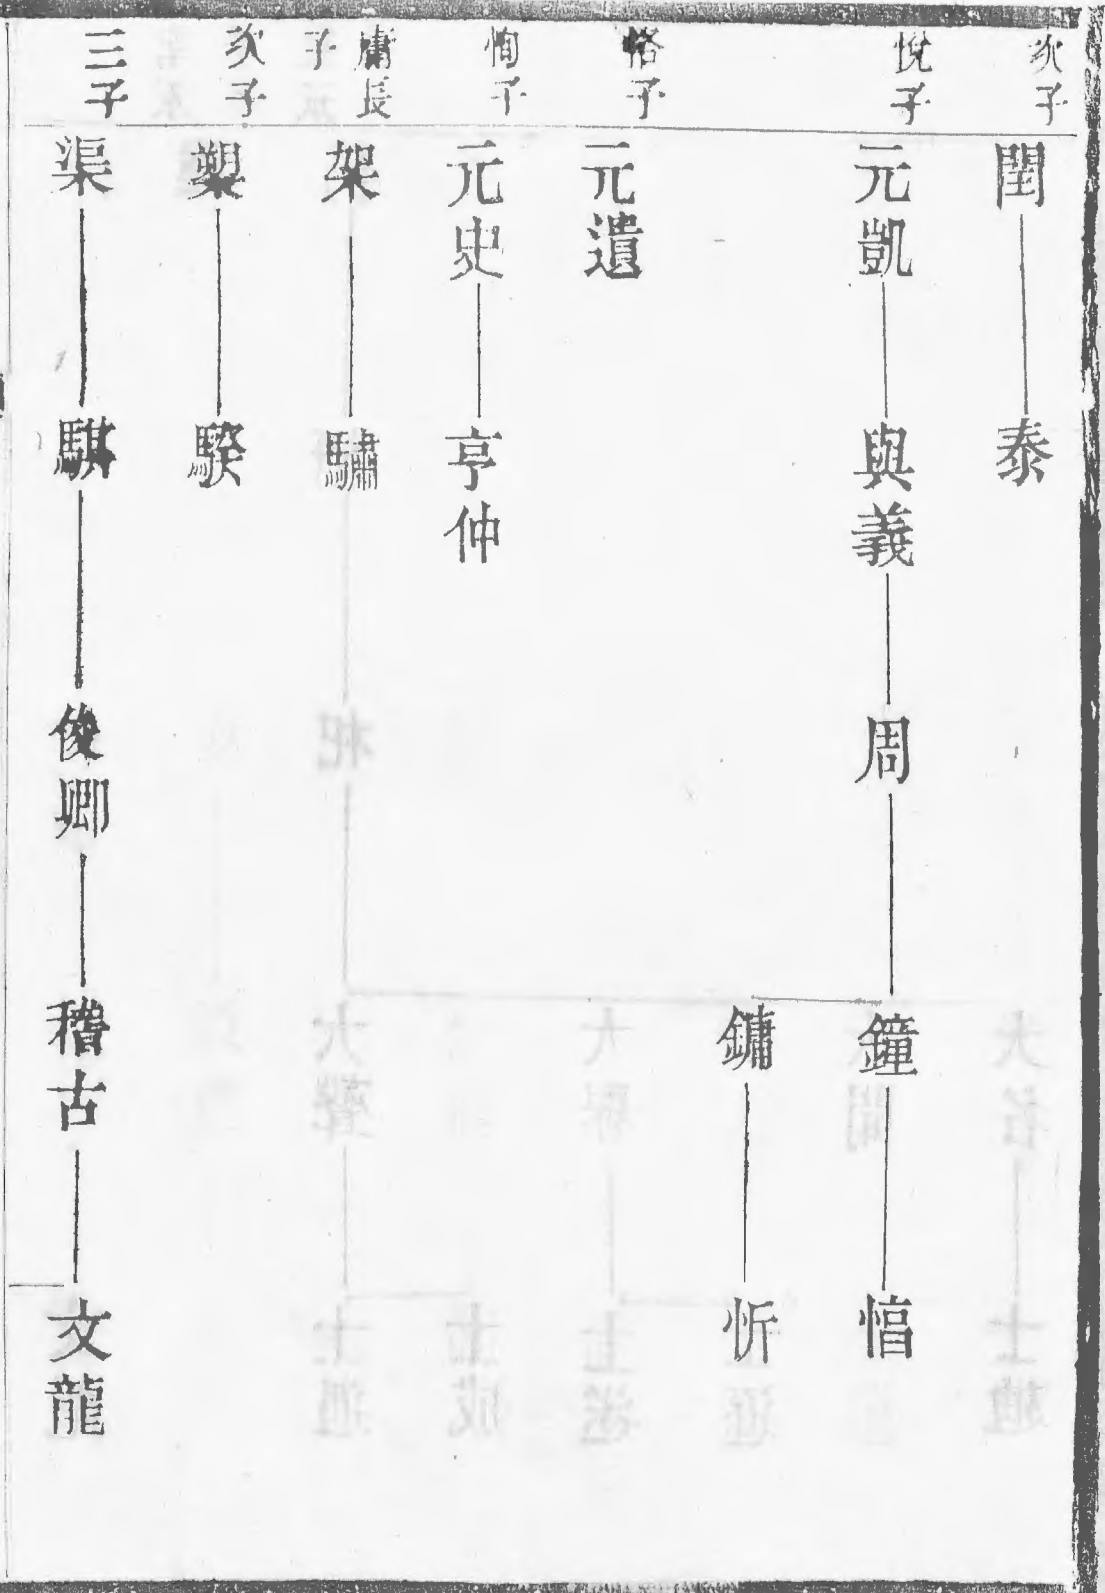 次子
閨
泰
悅子
元凱
與義
周
鐘
鏞
忻
恪子
元遺
恂子
元史
亨仲
庸長
子
架
驌
次子
騤
三子
渠
騏
俊卿
稽古
文龍